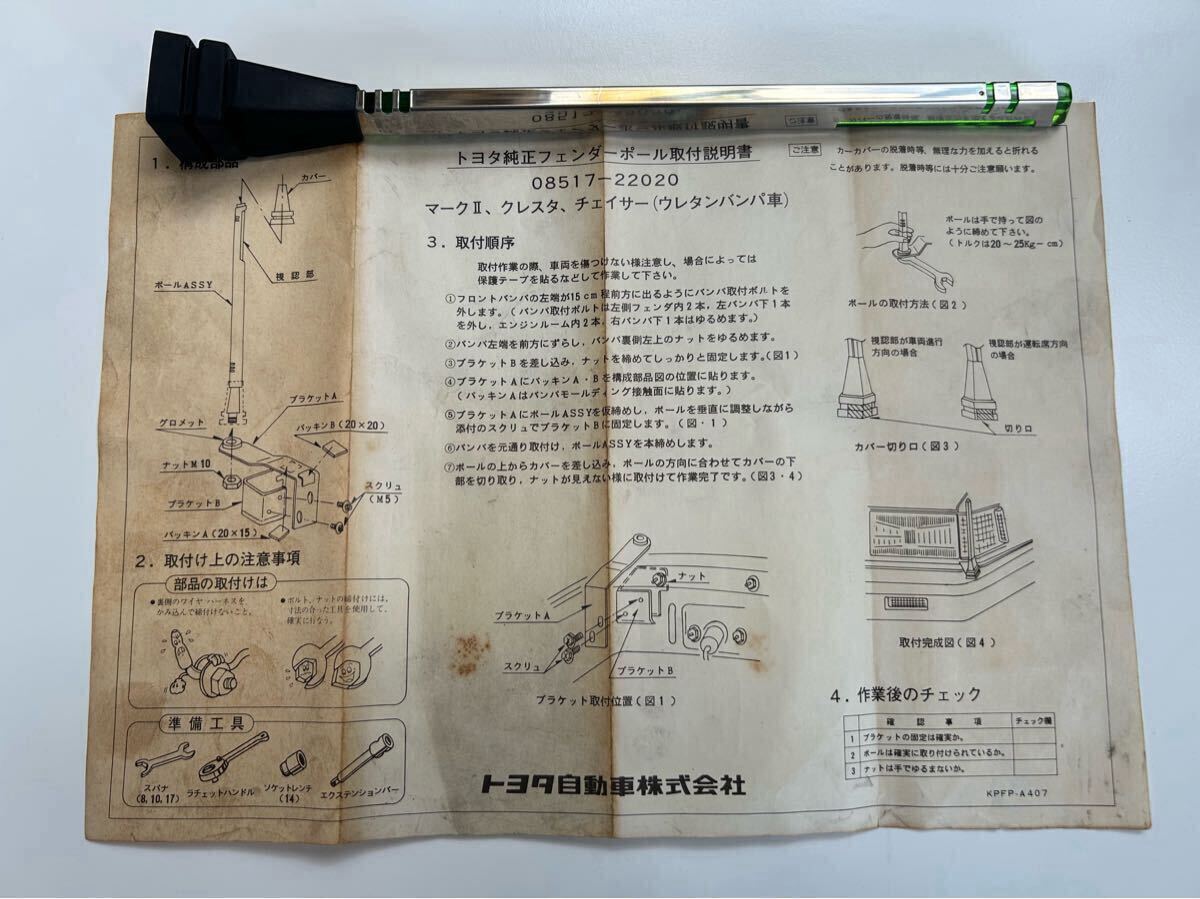 トヨタ純正フェンダーポール取付説明書
08517-22020
マークⅡ、クレスタ、チェイサー(ウレタンバンパ車)
1. 構成部品
カバー
視認部
ポールASSY
ブラケットA
グロメット
パッキンB(20×20)
ナットM10
スクリュ
(M5)
ブラケットB
パッキンA(20×15)
2. 取付け上の注意事項
部品の取付けは
●裏側のワイヤハーネスを
かみ込んで締付けないこと。
●ボルト、ナットの締付けには、
寸法の合った工具を使用して、
確実に行なう。
準備工具
スパナ
(8,10,17)
ラチェットハンドル
ソケットレンチ
(14)
エクステンションバー
3. 取付順序
取付作業の際、車両を傷つけない様注意し、場合によっては
保護テープを貼るなどして作業して下さい。
①フロントバンパの左端が15cm程前方に出るようにバンパ取付ボルトを
外します。(バンパ取付ボルトは左側フェンダ内2本，左バンパ下1本
を外し，エンジンルーム内2本，右バンパ下1本はゆるめます。)
②バンパ左端を前方にずらし，バンパ裏側左上のナットをゆるめます。
③ブラケットBを差し込み，ナットを締めてしっかりと固定します。(図1)
④ブラケットAにパッキンA・Bを構成部品図の位置に貼ります。
(パッキンAはバンパモールディング接触面に貼ります。)
⑤ブラケットAにポールASSYを仮締めし，ポールを垂直に調整しながら
添付のスクリュでブラケットBに固定します。(図・1)
⑥バンパを元通り取付け，ポールASSYを本締めします。
⑦ポールの上からカバーを差し込み，ポールの方向に合わせてカバーの下
部を切り取り，ナットが見えない様に取付けて作業完了です。(図3・4)
ナット
ブラケットA
スクリュ
ブラケットB
ブラケット取付位置(図1)
トヨタ自動車株式会社
ご注意
カーカバーの脱着時等，無理な力を加えると折れる
ことがあります。脱着時等には十分ご注意願います。
ポールは手で持って図の
ように締めて下さい。
(トルクは20～25Kg-cm)
ポールの取付方法(図2)
視認部が車両進行
方向の場合
視認部が運転席方向
の場合
切り口
カバー切り口(図3)
取付完成図(図4)
4. 作業後のチェック
確認事項 チェック欄
1 ブラケットの固定は確実か。
2 ポールは確実に取り付けられているか。
3 ナットは手でゆるまないか。
KPFP-A407